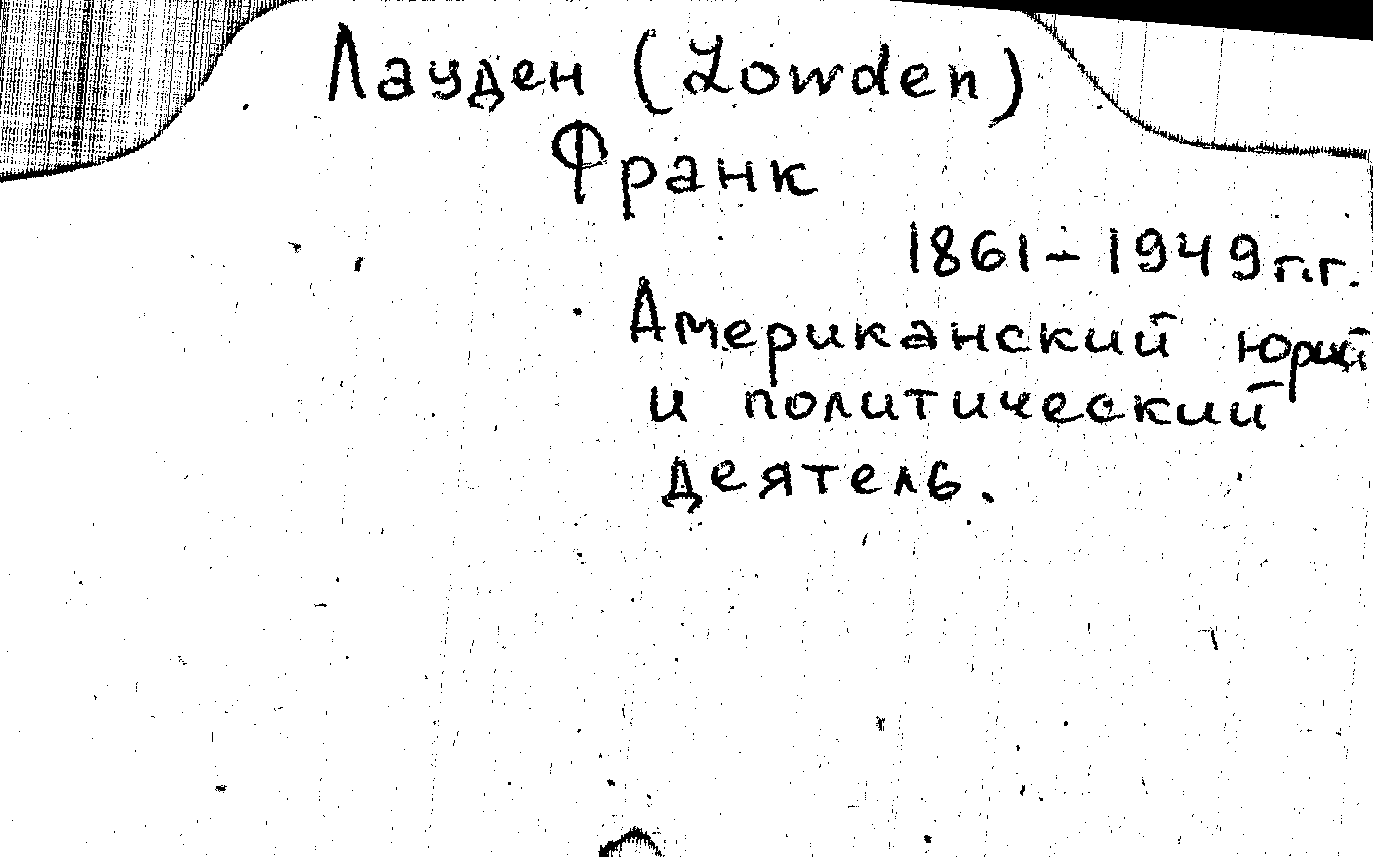 Лауден (Lowden)
Франк
1861-1949г.г.
Американский юрий
и политический
деятель.